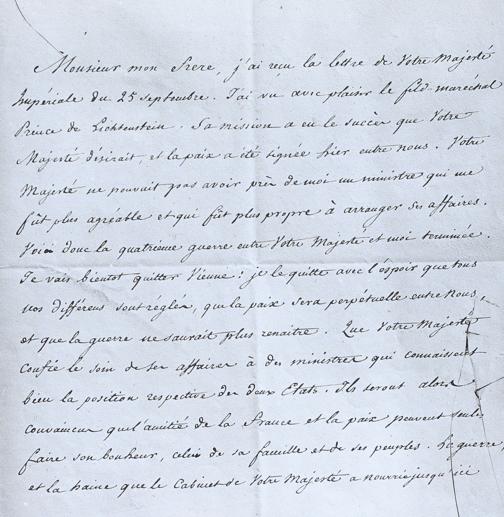 Monsieur mon Frere, j'ai reçu la lettre de Votre Majesté
Impériale du 25 septembre. J'ai vu avec plaisir le feld-maréchal
Prince de Lichtenstein. Sa mission a eu le succès que Votre
Majesté désirait, et la paix a été signée hier entre nous. Votre
Majesté ne pouvait pas avoir près de moi un ministre qui me
fût plus agréable et qui fût plus propre à arranger ses affaires.
Voici donc la quatrieme guerre entre Votre Majesté et moi terminée.
Je vais bientot quitter Vienne: je le quitte avec l'espoir que tous
nos différens sont réglés, que la paix sera perpétuelle entre nous,
et que la guerre ne saurait plus renaitre. Que Votre Majesté
confie le soin de ses affaires à des ministres qui connaissent
bien la position respective des deux Etats. Ils seront alors
convaincus que l'amitié de la France et la paix peuvent seules
faire son bonheur, celui de sa famille et de ses peuples. La guerre,
et la haine que le Cabinet de Votre Majesté a nourrie jusqu'ici